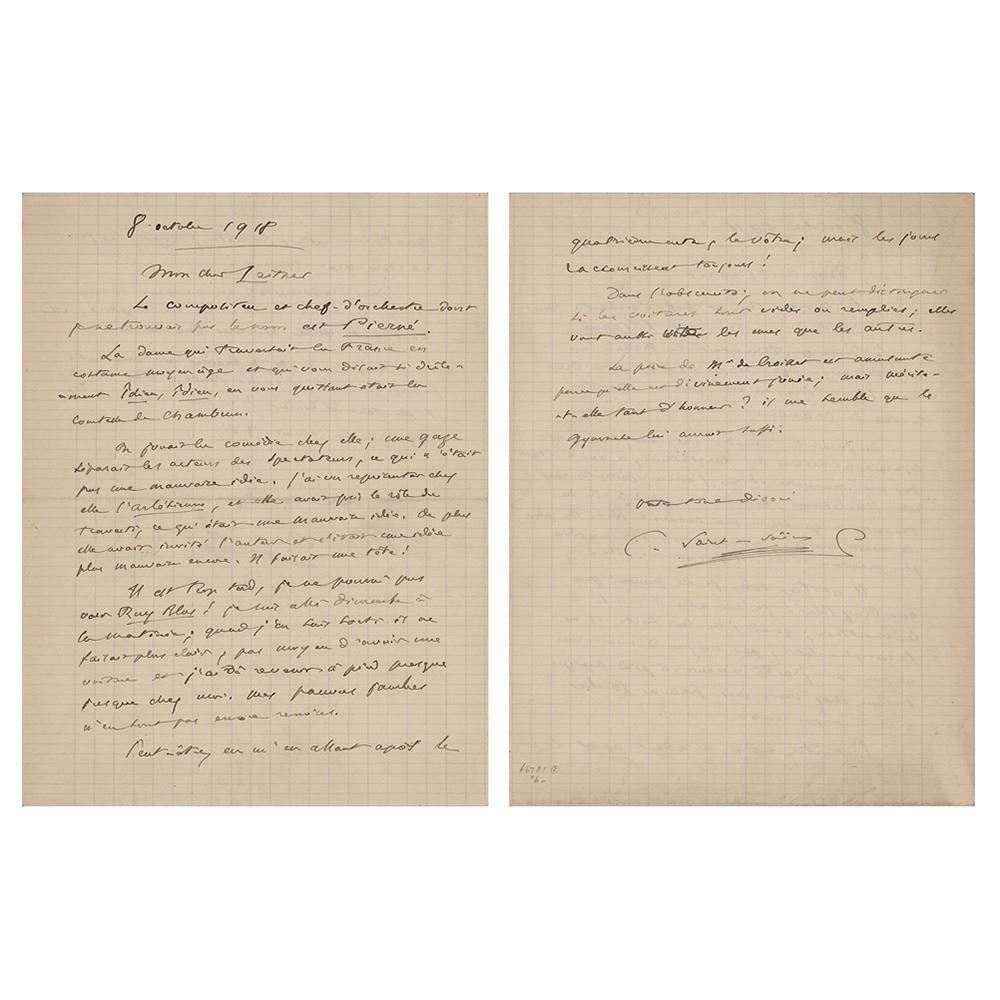 8 octobre 1918
Mon cher Leitner
Le compositeur et chef-d'orchestre dont
je ne trouvais pas le nom est Pierné.
La dame qui traversait la France en
costume moyen-âge et qui vous disait si drôle-
ment Idieu, Idieu, en vous quittant était la
Comtesse de Chambrun.
On jouait la comédie chez elle; une gaze
séparait les acteurs des spectateurs, ce qui n'était
pas une mauvaise idée. J'ai vu représenter chez
elle l'Arlésienne, et elle avait pris le rôle du
travesti, ce qui était une mauvaise idée. De plus
elle avait invité l'auteur et c'était une idée
plus mauvaise encore. Il faisait une tête!
Il est trop tard, je ne pourrai pas
voir Ruy Blas! je suis allé dimanche à
la matinée; quand j'en suis sorti il ne
faisait plus clair, pas moyen d'avoir une
voiture et j'ai dû revenir à pied presque
jusque chez moi. Mes pauvres jambes
n'en sont pas encore remises.
Peut-être, en m'en allant après le
quatrième acte, le vôtre; mais les jours
raccourcissent toujours!
Dans l'obscurité, on ne peut distinguer
si les voitures sont vides ou remplies; elles
vont aussi vite les unes que les autres.
La pièce de Mr de Croisset est amusante
parce qu'elle est divinement jouée; mais mérite-
t-elle tant d'honneur? il me semble que le
Gymnase lui aurait suffi.
Votre tout dévoué
C. Saint-Saëns